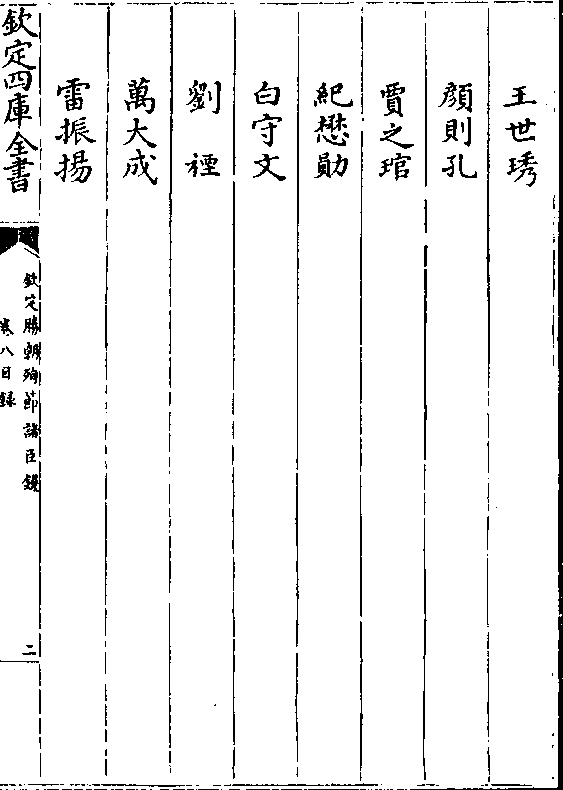 王世琇
顔則孔
賈之琯
紀懋勛
白守文
劉　禋
萬大成
雷振揚
欽定四庫全書
欽定勝朝殉節諸臣錄
卷八目録
二